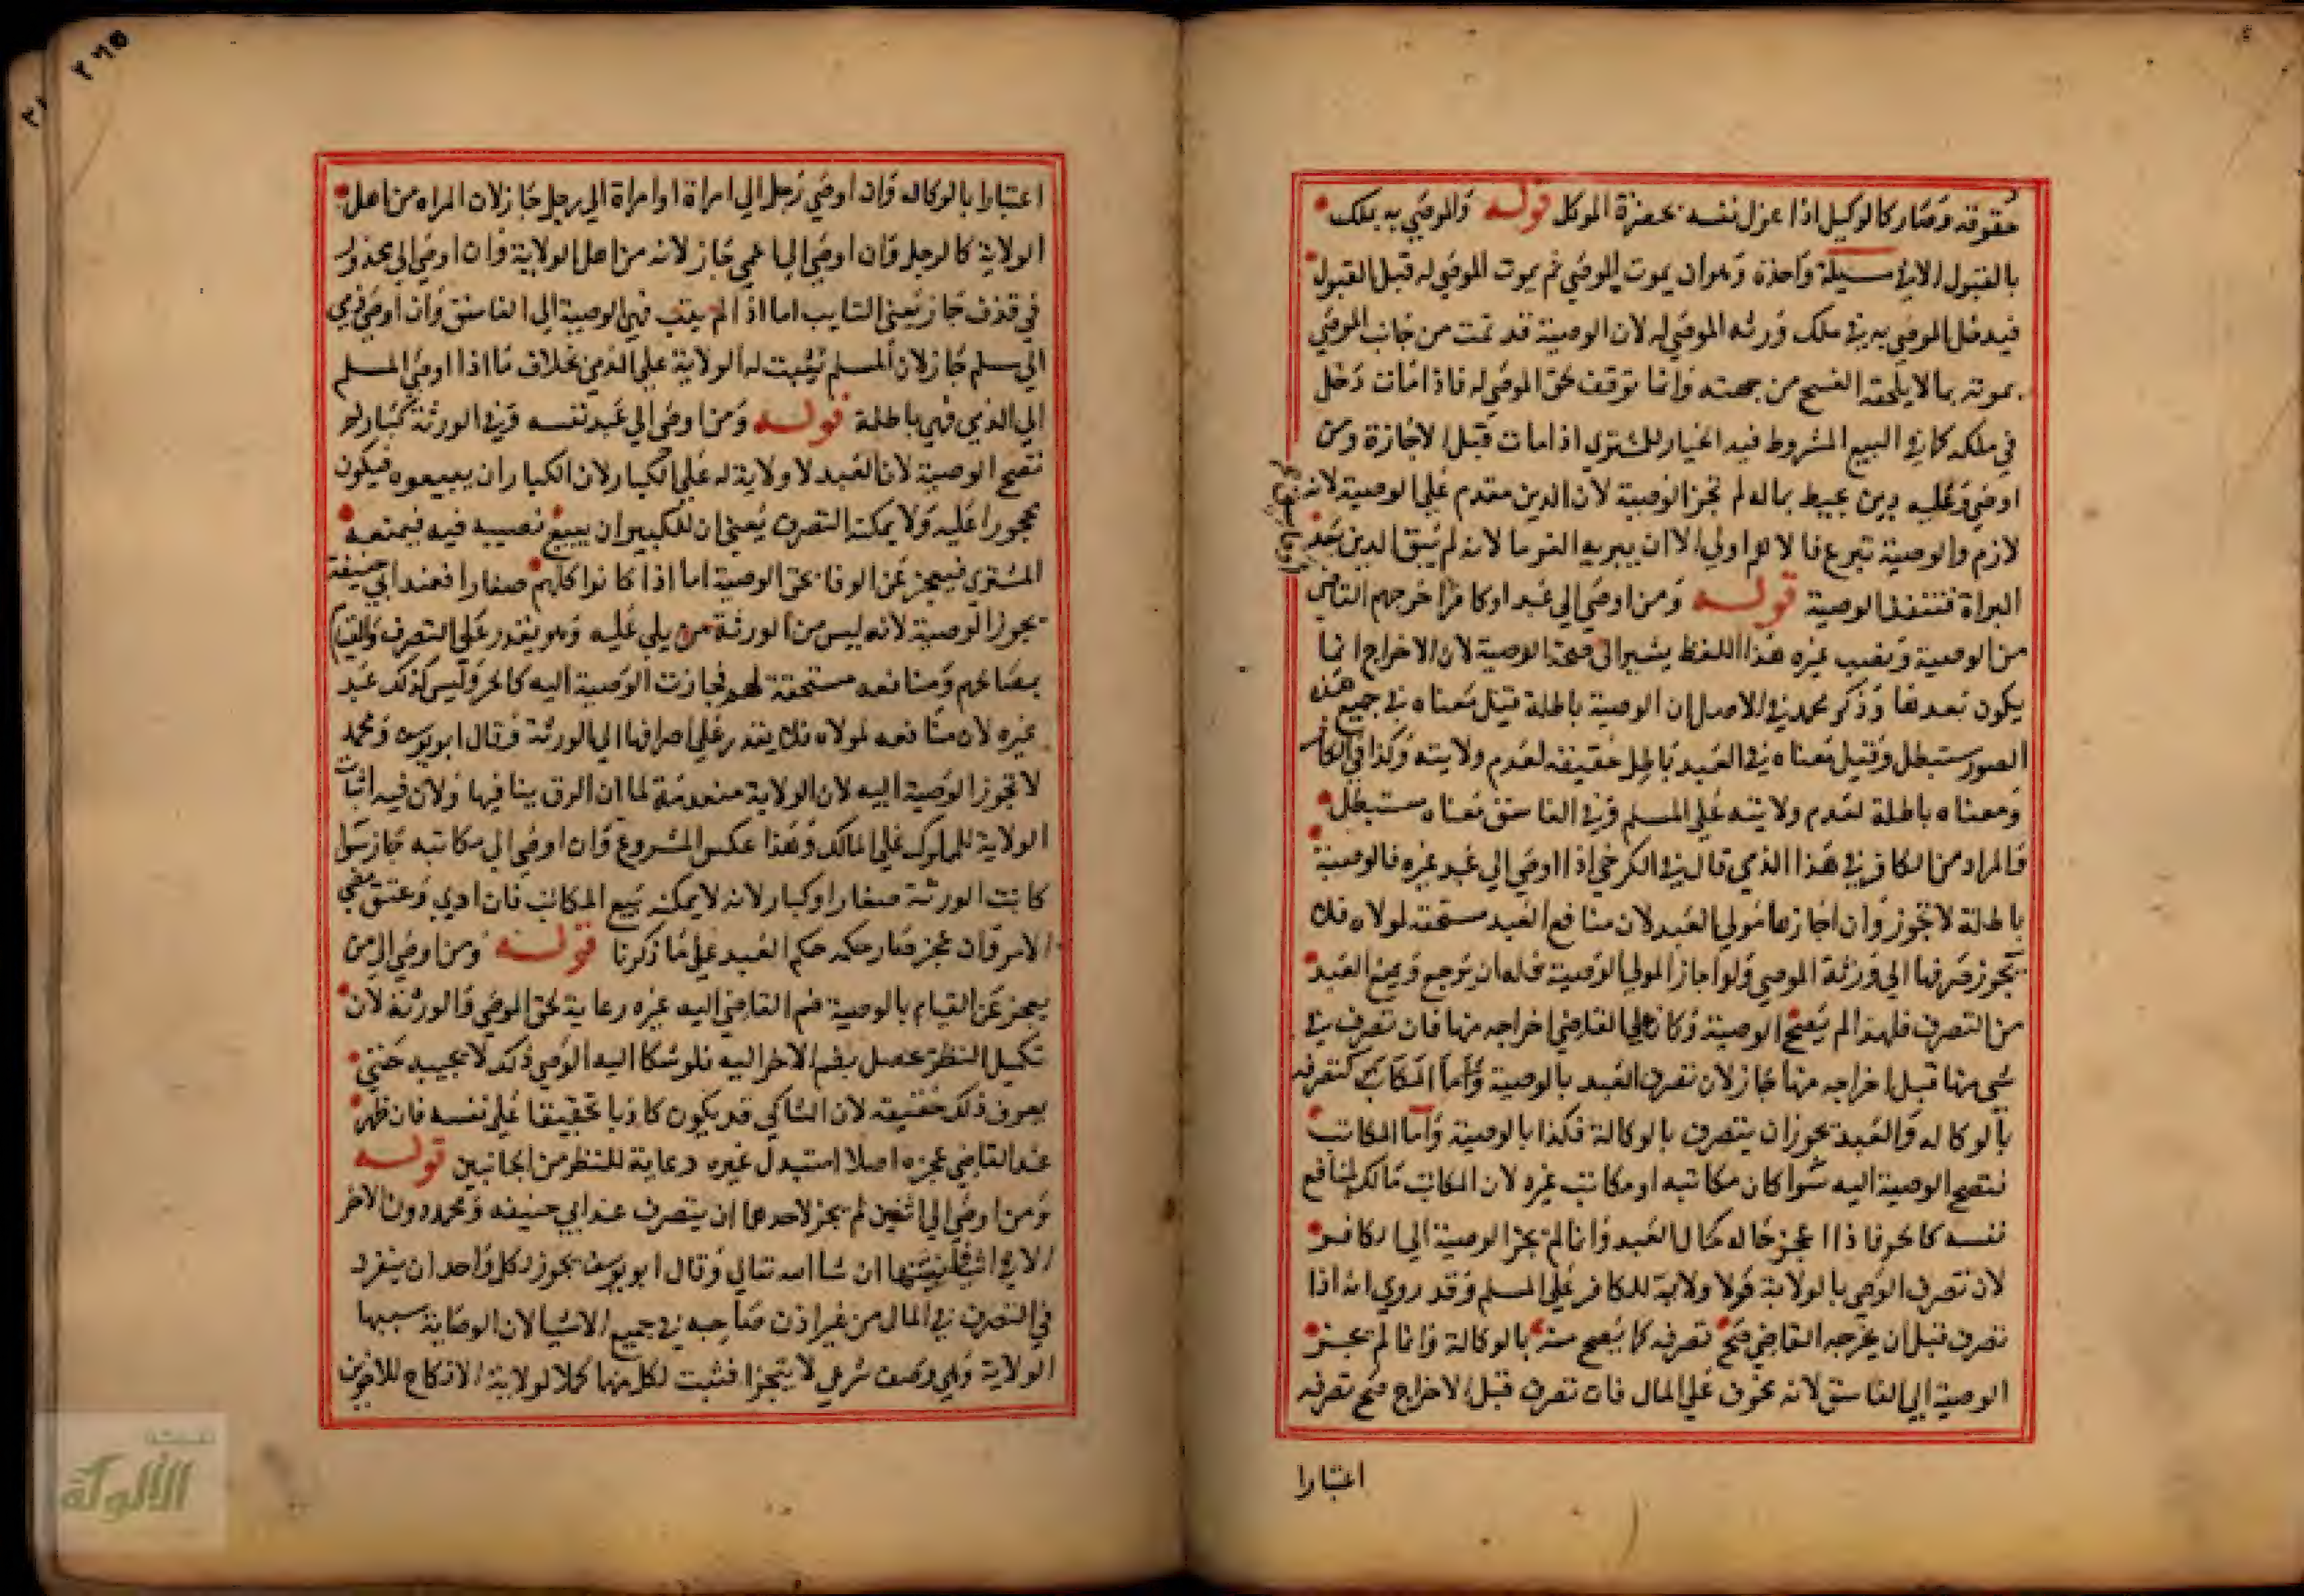 حقوقه وصار كالوكيل اذا عزل نفسه بحضرة الموكل قوله والموصي به يملك
بالقبول الا في مسيلة واحدة وهو ان يموت الموصي ثم يموت الموصي له قبل القبول
فيدخل الموصي به في ملك ورثه الموصي له لان الوصية قد تمت من جانب الموصي
بموته بما لا يلحقه الفسخ من جهته وانما توقف لحق الموصي له فاذا مات دخل
في ملكه كما في البيع المشروط فيه الخيار للمشتري اذا مات قبل الاجازة ومن
اوصي وعليه دين يحيط بماله لم تجز الوصية لان الدين مقدم علي الوصية لانه
لازم والوصية تبرع فالا لزم اولي الا ان يبريه الغرما لانه لم يبق الدين بعد
البراة فتنفذ الوصية قوله ومن اوصي الي عبد او كافر اخرجهم القاضي
من الوصية ونصب غيره هذا اللفظ يشير الي صحة الوصية لان الاخراج انما
يكون بعدها وذكر محمد في الاصل ان الوصية باطلة قيل معناه في جميع هذه
الصور ستبطل وقيل معناه في العبد باطل حقيقه لعدم ولايته وكذا في الكافر
ومعناه باطلة لعدم ولايته علي المسلم وفي الفاسق معناه ستبطل
والمراد من الكافر في هذا الذمي قال في الكرخي اذا اوصي الي عبد غيره فالوصية
باطلة لا تجوز وان اجازها مولي العبد لان منافع العبد مستحقه لمولاه فلا
يجوز صرفها الي ورثة الموصي ولو اجاز المولي الوصية فله ان يرجع ويمنع العبد
من التصرف فلهذا لم يصح الوصية وكان علي القاضي اخراجه منها فان تصرف في
شي منها قبل اخراجه منها جاز لان تصرف العبد بالوصية كتصرفه
بالوكاله والعبد يجوز ان يتصرف بالوكالة فكذا بالوصية واما المكاتب
فتصح الوصية اليه سوا كان مكاتبه او مكاتب غيره لان المكاتب مالك لمنافع
نفسه كالحر فاذا عجز حاله كحال العبد وانما لم يجز الوصية الي الكافر
لان تصرف الوصي بالولاية ولا ولاية للكافر علي المسلم وقد روي انه اذا
تصرف قبل ان يخرجه القاضي صح تصرفه كما يصح منه بالوكالة وانما لم يجز
الوصية الي الفاسق لانه مخوف علي المال فان تصرف قبل الاخراج صح تصرفه
اعتبارا
٢٦٥
اعتبارا بالوكاله وان اوصي رجل الي امراة او امراة الي رجل جاز لان المراه من اهل
الولاية كالرجل وان اوصي الي اعمي جاز لانه من اهل الولاية وان اوصي الي محدود
في قذف جاز يعني التايب اما اذا لم يتب فهي الوصية الي الفاسق وان اوصي ذمي
الي مسلم جاز لان المسلم يثبت له الولاية علي الذمي بخلاف ما اذا اوصي المسلم
الي الذمي فهي باطلة قوله ومن اوصي الي عبد نفسه وفي الورثة كبار لم
تصح الوصية لان العبد لا ولاية له علي الكبار لان الكبار ان يبيعوه فيكون
محجورا عليه ولا يمكنه التصرف يعني ان للكبير ان يبيع نصيبه فيه فيمنعه
المشتري فيعجز عن الوفا بحق الوصية اما اذا كانوا كلهم صغارا فعند ابي حنيفة
يجوز الوصية لانه ليس من الورثة من يلي عليه وهو يقدر علي التصرف والقيام
بمصالحهم ومنافعه مستحقة لهم فجازت الوصية اليه كالحر وليس كذلك عبد
غيره لان منافعه لمولاه فلا يقدر علي اصرافها الي الورثة وقال ابو يوسف ومحمد
لا تجوز الوصية اليه لان الولاية منعدمة لما ان الرق ينافيها ولان فيه اثبات
الولاية للمملوك علي المالك وهذا عكس المشروع وان اوصي الي مكاتبه جاز سوا
كانت الورثة صغارا او كبار لانه لا يمكنه بيع المكاتب فان ادي وعتق مضي
الامر وان عجز صار حكمه حكم العبد علي ما ذكرنا قوله ومن اوصي الي من
يعجز عن القيام بالوصية ضم القاضي اليه غيره رعاية لحق الموصي والورثة لان
تكميل النظر يحصل بضم الاخر اليه فلو شكا اليه الوصي ذلك لا يجيبه حتي
يعرف ذلك حقيقه لان الشاكي قد يكون كاذبا تخفيفا علي نفسه فان ظهر
عند القاضي عجزه اصلا استبدل غيره رعاية للنظر من الجانبين قوله
ومن اوصي الي اثنين لم يجز لاحدهما ان يتصرف عند ابي حنيفه ومحمد دون الاخر
الا في اشيا نبينها ان شا الله تعالي وقال ابو يوسف يجوز لكل واحد ان ينفرد
في التصرف في المال من غير اذن صاحبه في جميع الاشيا لان الوصاية سببها
الولاية وهي وصف شرعي لا يتجزا فثبت لكل منهما كملا كولاية الانكاح للاخوين
الألوكة